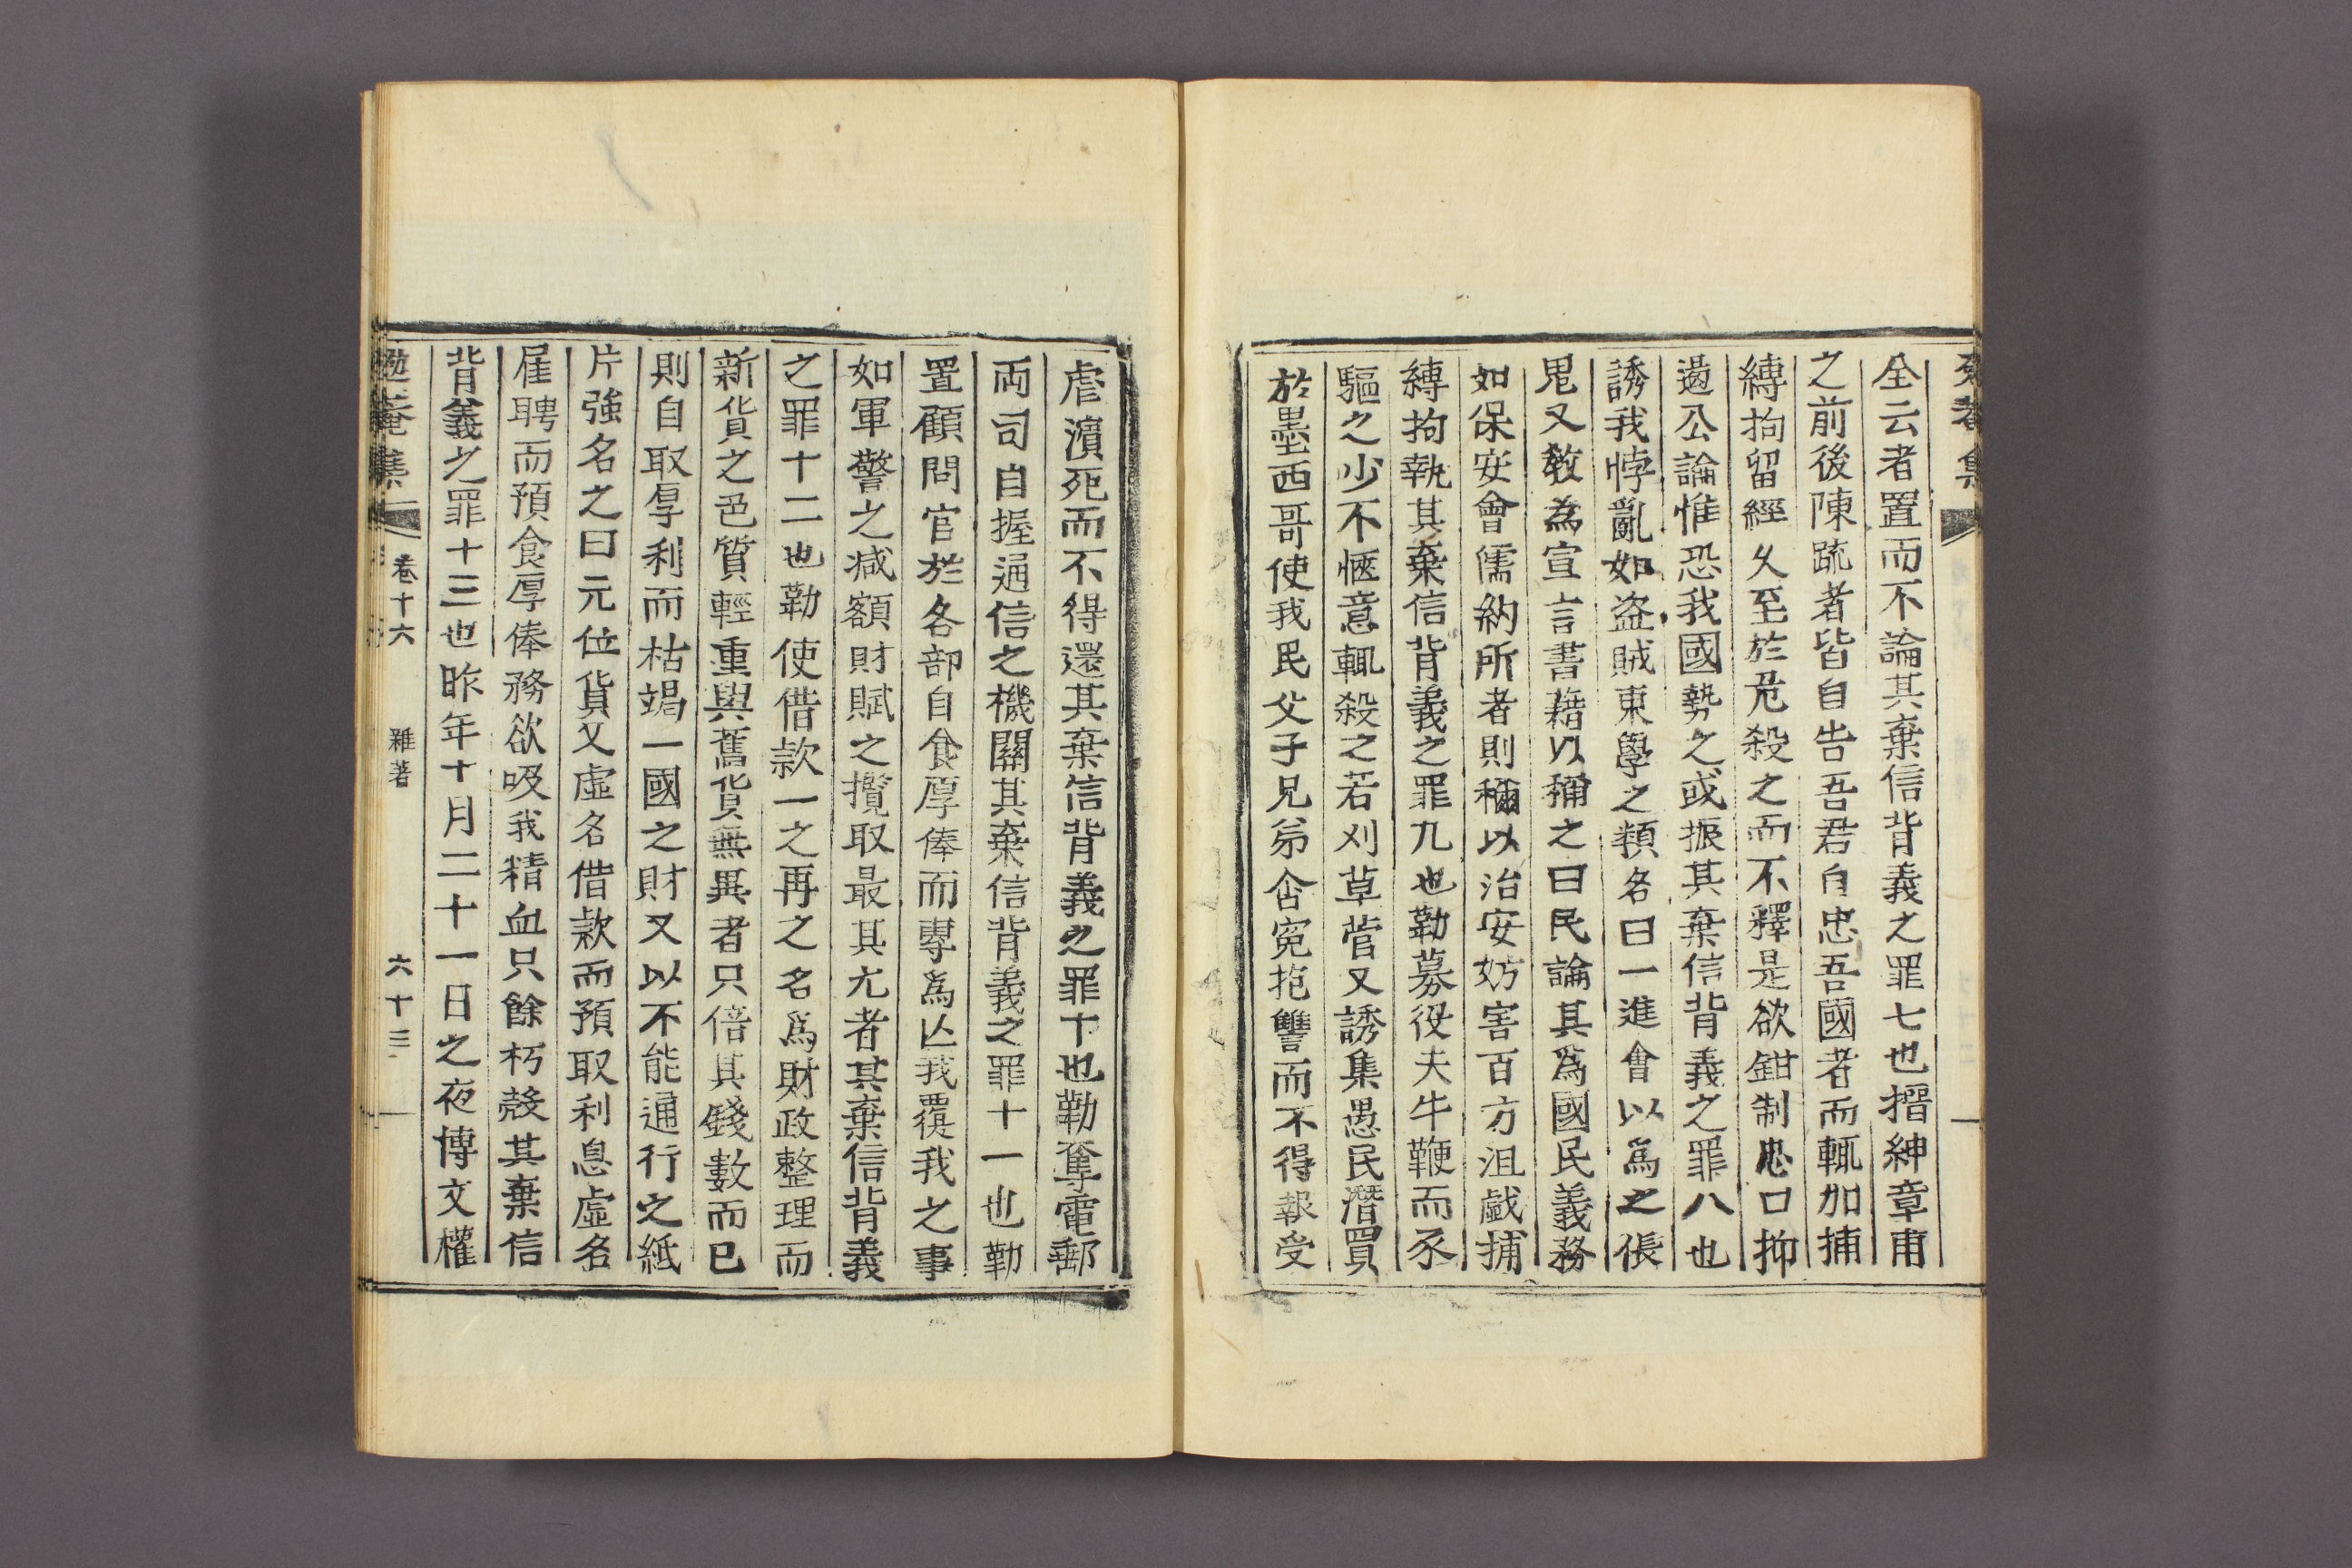 全云者置而不論其棄信背義之罪七也搢紳章甫
之前後陳疏者皆自告吾君自忠吾國者而輒加捕
縛拘留經久至於危殺之而不釋是欲鉗制忠口抑
遏公論惟恐我國勢之或振其棄信背義之罪八也
誘我悖亂如盜賊東學之類名曰一進會以爲之倀
鬼又敎為宣言書藉以稱之曰民論其爲國民義務
如保安會儒約所者則稱以治安妨害百方沮戱捕
縛拘執其棄信背義之罪九也勒募役夫牛鞭而豕
驅之少不愜意輒殺之若刈草菅又誘集愚民潛買
於墨西哥使我民父子兄弟含寃抱讐而不得報受
虐濱死而不得還其棄信背義之罪十也勒奪電郵
両司自握通信之機關其棄信背義之罪十一也勒
置顧問官於各部自食厚俸而專爲亾我覆我之事
如軍警之减額財賦之攬取最其尤者其棄信背義
之罪十二也勒使借款一之再之名爲財政整理而
新貨之色質輕重與舊貨無異者只倍其錢數而已
則自取厚利而枯竭一國之財又以不能通行之紙
片強名之曰元位貨又虛名借款而預取利息虛名
雇聘而預食厚俸務欲吸我精血只餘朽殼其棄信
背義之罪十三也昨年十月二十一日之夜博文權
勉菴集 卷十六 雜著 六十三